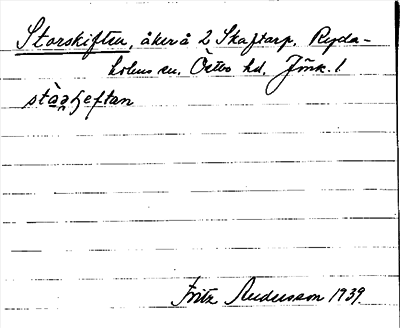 Storskiften, åker å 2 Skaftarp, Ryda-
holms sn. Östbo hd. Jönk. l
Fritz Andersson 1939.